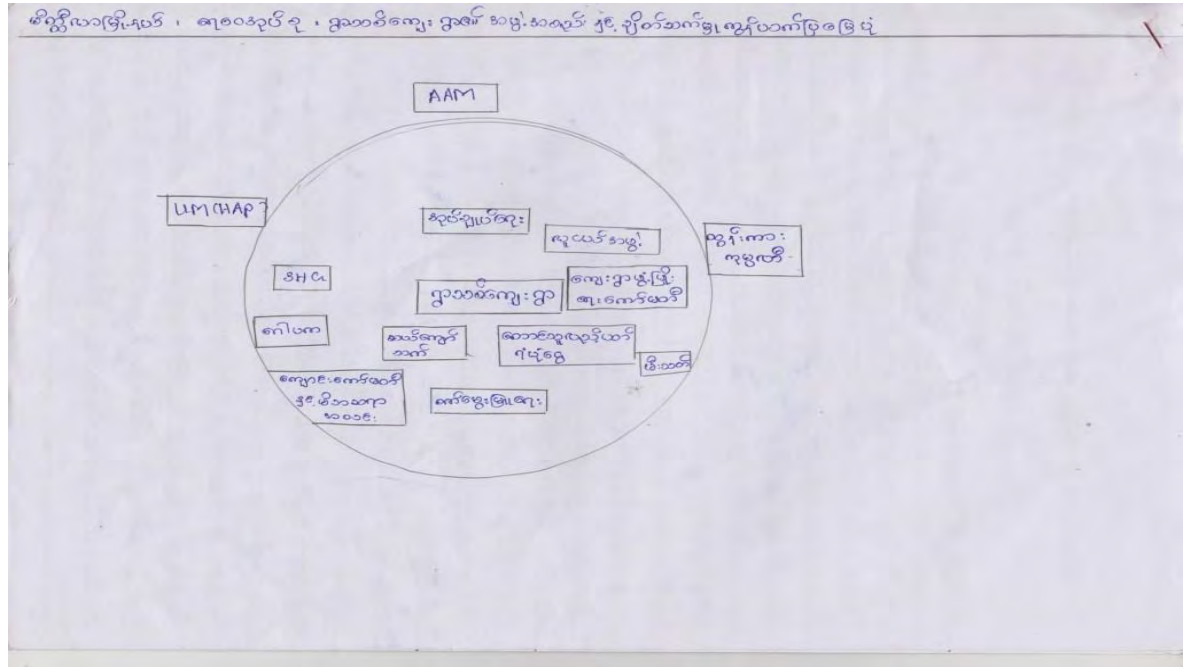 မိတ္ထီလာမြို့နယ် ၊ ရေဝေအုပ်စု ၊ ရွာသာစ်ကျေးရွာ၏ အဖွဲ့အစည်း နှင့် ချိတ်ဆက်မှု ကွန်ယက်ပြမြေပုံ
AAM
UMCHAP
အုပ်ချုပ်ရေး
လူငယ်အဖွဲ့
ထွန်းကား
ကုမ္ပဏီ
SHG
ရွာသစ်ကျေးရွာ
ကျေးရွာဖွံ့ဖြိုး
ရေးကော်မတီ
ဂေါပက
ဆယ်ကျော်
သက်
တောင်သူလုပ်ငန်း
ရံပုံငွေ
မီးသတ်
ကျောင်းကော်မတီ
နှင့် မိဘဆရာ
အသင်း
စက်မွေးမြူရေး